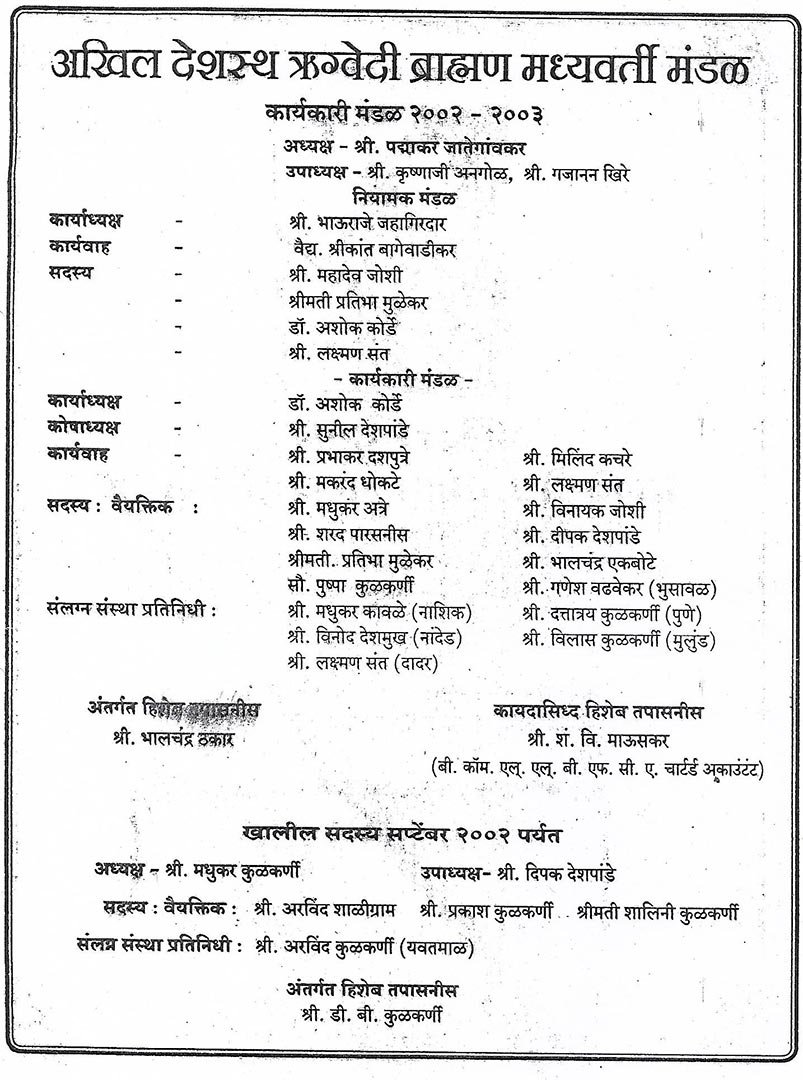 अखिल देशस्थ ऋग्वेदी ब्राह्मण मध्यवर्ती मंडळ
कार्यकारी मंडळ २००२ - २००३
अध्यक्ष - श्री. पद्माकर जातेगांवकर
उपाध्यक्ष - श्री. कृष्णाजी अनगोळ, श्री. गजानन खिरे
नियामक मंडळ
कार्याध्यक्ष - श्री. भाऊराजे जहागिरदार
कार्यवाह - वैद्य. श्रीकांत बागेवाडीकर
सदस्य - श्री. महादेव जोशी
- श्रीमती प्रतिभा मुळेकर
- डॉ. अशोक कोर्डे
- श्री. लक्ष्मण संत
- कार्यकारी मंडळ -
कार्याध्यक्ष - डॉ. अशोक कोर्डे
कोषाध्यक्ष - श्री. सुनील देशपांडे
कार्यवाह - श्री. प्रभाकर दशपुत्रे श्री. मिलिंद कचरे
श्री. मकरंद धोकटे श्री. लक्ष्मण संत
सदस्य : वैयक्तिक : श्री. मधुकर अत्रे श्री. विनायक जोशी
श्री. शरद पारसनीस श्री. दीपक देशपांडे
श्रीमती. प्रतिभा मुळेकर श्री. भालचंद्र एकबोटे
सौ. पुष्पा कुळकर्णी श्री. गणेश वढवेकर (भुसावळ)
संलग्न संस्था प्रतिनिधी : श्री. मधुकर कावळे (नाशिक) श्री. दत्तात्रय कुळकर्णी (पुणे)
श्री. विनोद देशमुख (नांदेड) श्री. विलास कुळकर्णी (मुलुंड)
श्री. लक्ष्मण संत (दादर)
अंतर्गत हिशेब तपासनीस कायदासिध्द हिशेब तपासनीस
श्री. भालचंद्र ठकार श्री. शं. वि. माऊसकर
(बी. कॉम. एल्. एल्. बी. एफ. सी. ए. चार्टर्ड अकाउंटंट)
खालील सदस्य सप्टेंबर २००२ पर्यत
अध्यक्ष - श्री. मधुकर कुळकर्णी उपाध्यक्ष- श्री. दिपक देशपांडे
सदस्य : वैयक्तिक : श्री. अरविंद शाळीग्राम श्री. प्रकाश कुळकर्णी श्रीमती शालिनी कुळकर्णी
संलग्न संस्था प्रतिनिधी : श्री. अरविंद कुळकर्णी (यवतमाळ)
अंतर्गत हिशेब तपासनीस
श्री. डी. बी. कुळकर्णी